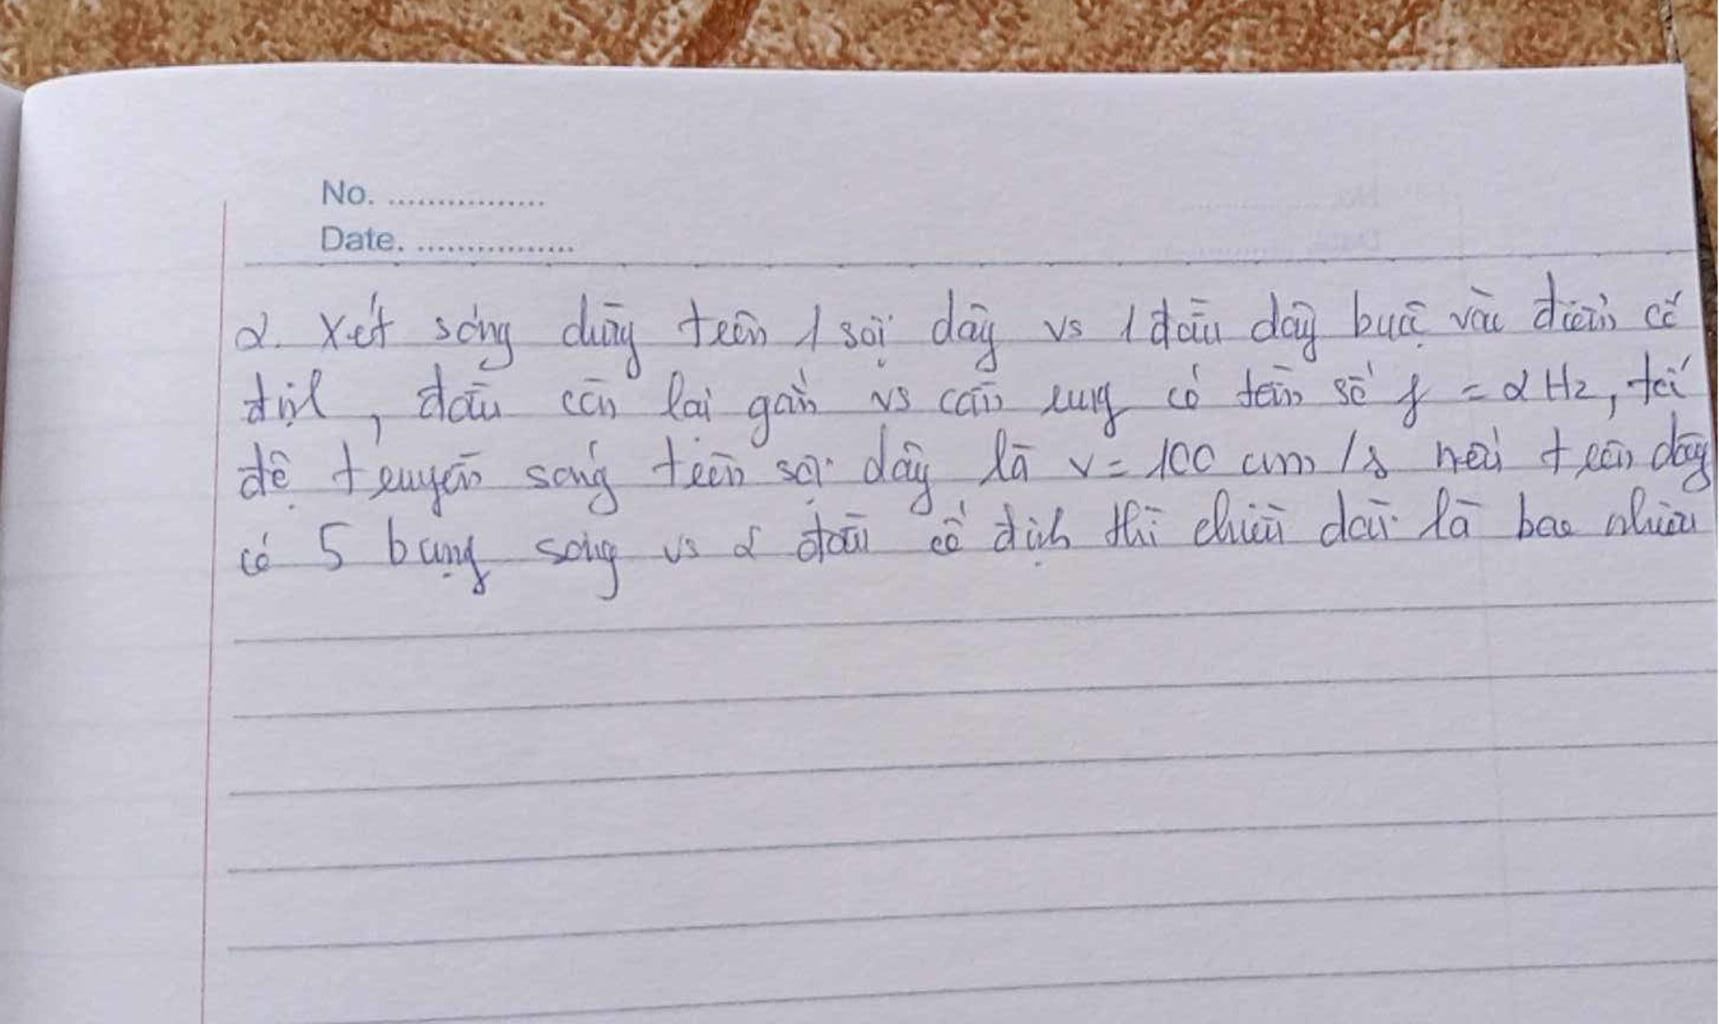 No. ................
Date. ................
2. Xét sóng dừng trên 1 sợi dây vs 1 đầu dây buộc vào điểm cố
định, đầu còn lại gắn vs cần rung có tần số f = 2 Hz, tốc
độ truyền sóng trên sợi dây là v = 100 cm/s nếu trên dây
có 5 bụng sóng vs 2 đầu cố định thì chiều dài là bao nhiêu